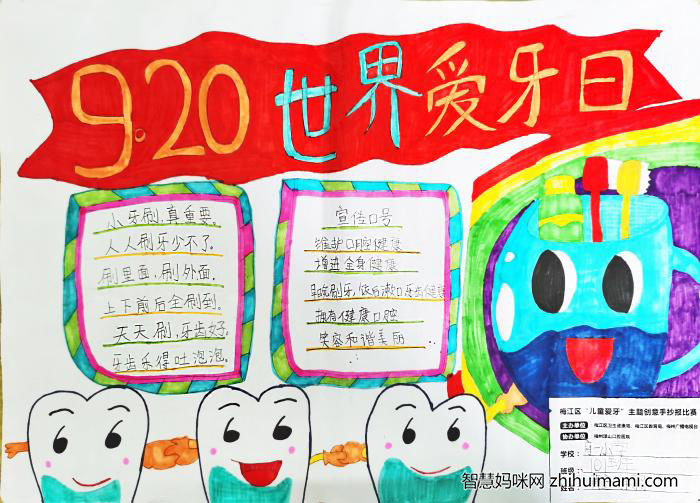 9.20世界爱牙日
小牙刷,真重要。
人人刷牙少不了。
刷里面,刷外面。
上下前后全刷到。
天天刷,牙齿好。
牙齿乐得吐泡泡。
宣传口号
维护口腔健康
增进全身健康
早晚刷牙,饭后漱口牙齿健康
拥有健康口腔
笑容和谐美丽
梅江区“儿童爱牙”主题创意手抄报比赛
主办单位 梅江区卫生健康局、梅江区教育局、梅州广播电视台
协办单位
学校:
班级
智慧妈咪网 zhihuimami.com